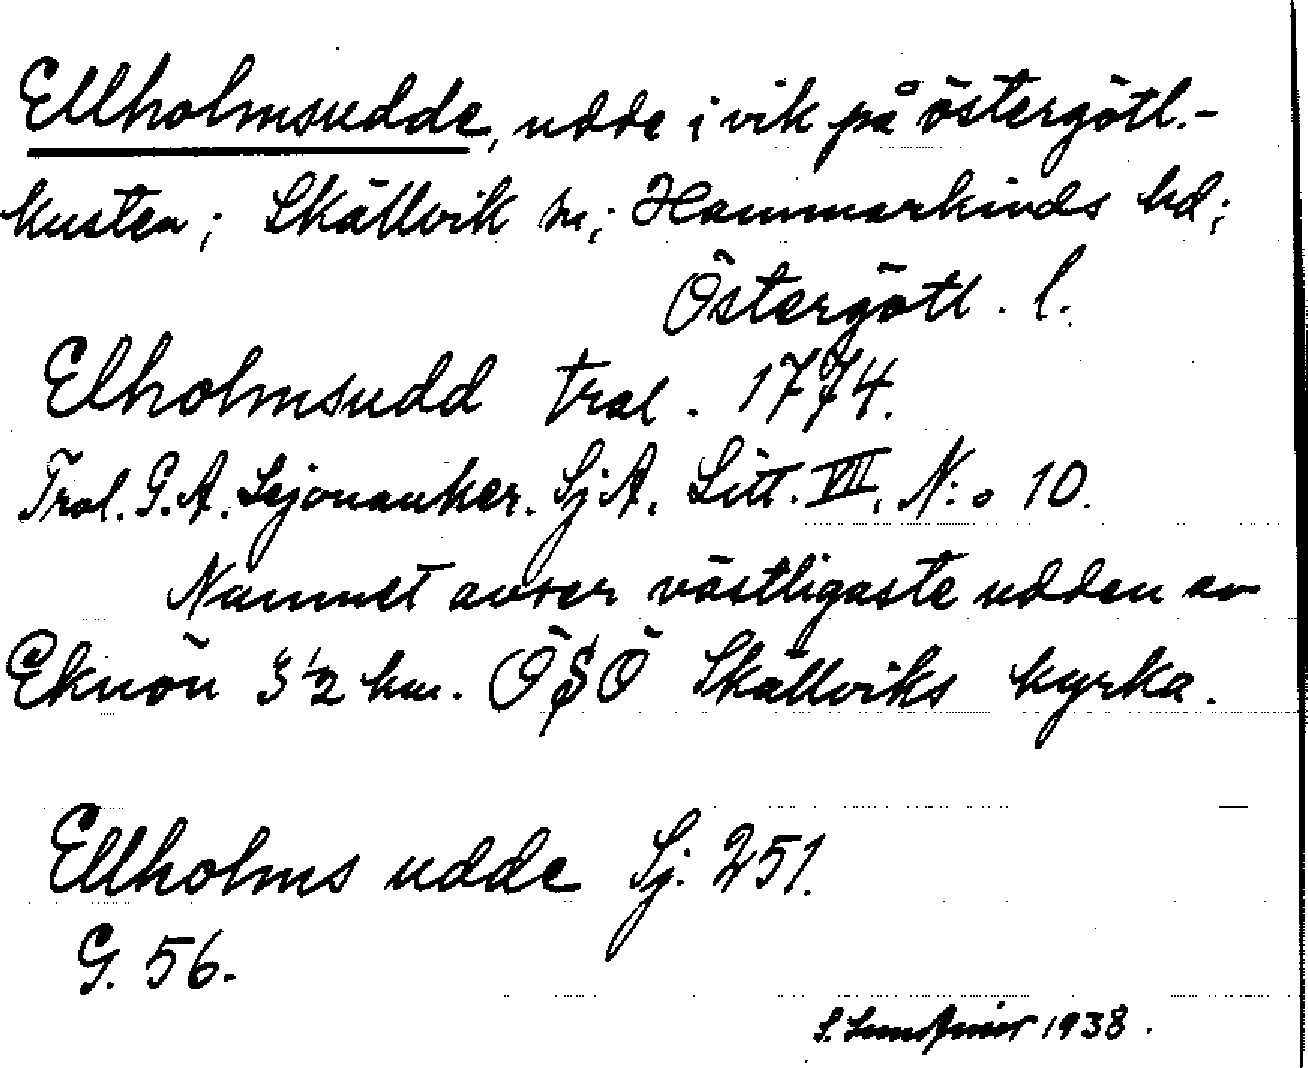 Ellholmsudde, udde i vik på östergötl.-
kusten; Skällvik sn; Hammarkinds hd;
Östergötl. l.
Elholmsudd trol. 1774.
Trol. G. A. Lejonanker. Sj A. Litt. VII, N:o 10.
Namnet avser västligaste udden av
Eknön 3 1/2 km. ÖSÖ Skällviks kyrka.
Ellholms udde Sj. 251.
G. 56.
1938.